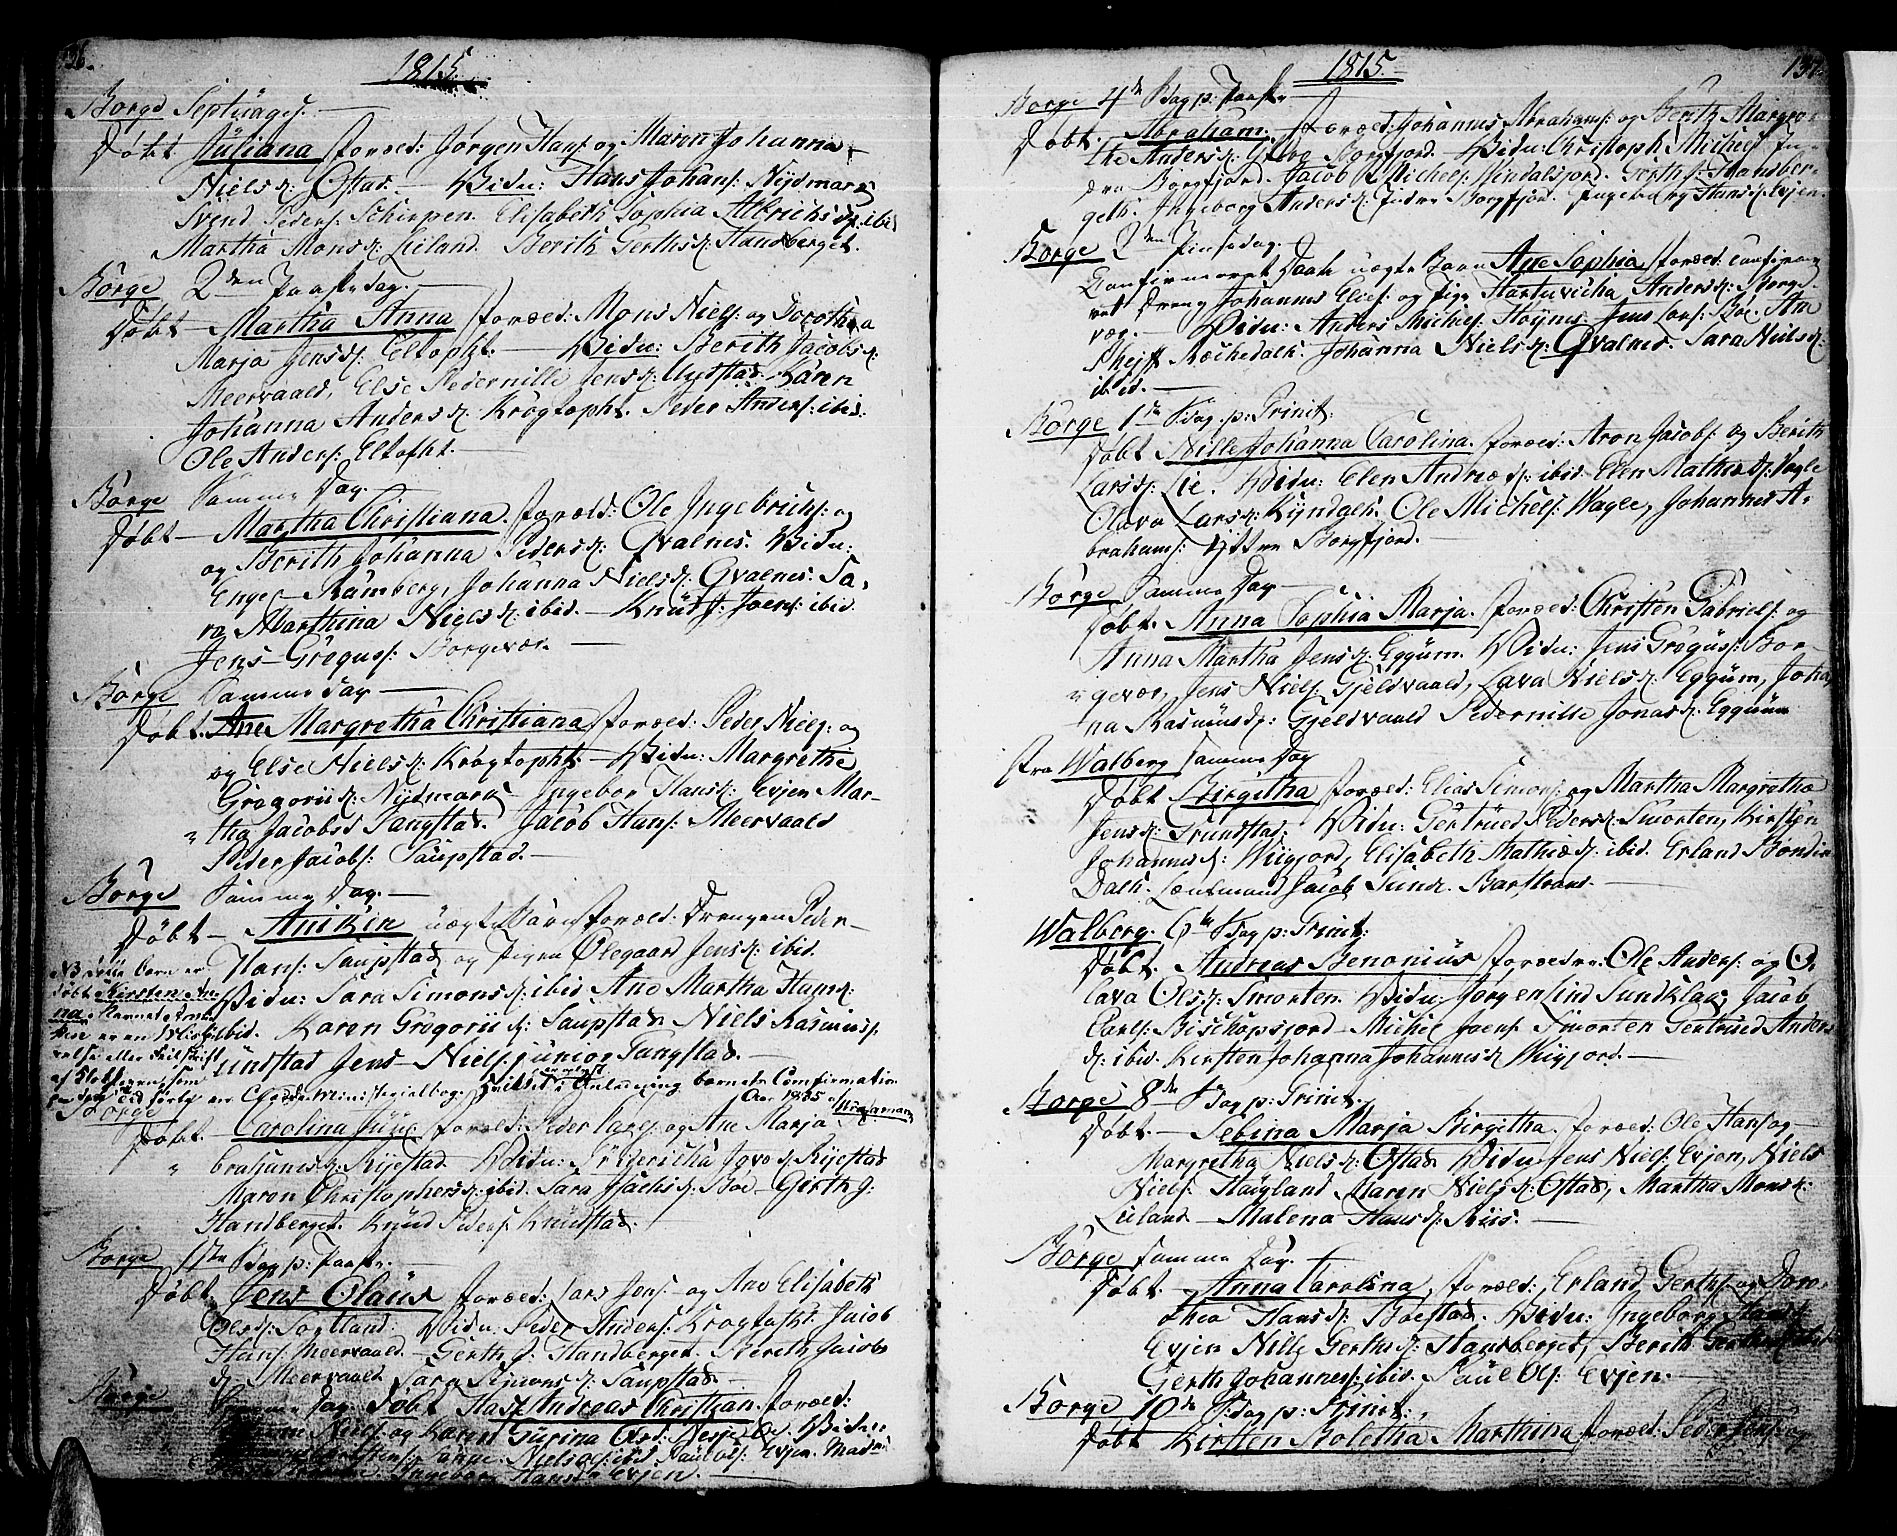 136.
1815.
Borge Septuages.
Døbt Juliana, foræld: Jørgen Hans: og Maren Johanna
Niels d: Ostad. Vidn: Hans Johans: Nydmark
Svend Peders: Scherpen. Elisabeth Sophia Albrichs d: ibid
Martha Mons d: Leiland. Berith Gerths d: Handberget.
Borge 2den Paaskedag.
Døbt Martha Anna foræld: Mons Niels: og Dorothea
Marja Jens d: Eltopht. Vidn: Berith Jacobs d:
Meervaald, Else Pedernille Jens d: Uystad. Karen
Johanna Anders d: Krogtopht. Peder Anders: ibid:
Ole Anders: Eltofht.
Borge Samme Dag
Døbt Martha Christiana. foræld: Ole Ingebricts: og
og Berith Johanna Peders d: Qvalnes. Vidn:
Enge Ramberg, Johanna Niels d: Qvalnes. Sa-
ra Marthina Niels d: ibid. Knud J. Joens: ibid.
Jens Grogus: Borgevær.
Borge Samme Dag
Døbt. Ane Margretha Christiana foræld: Peder Niels: og
og Else Niels d: Krogtopht. Vidn: Margrethe
Grogorii d: Nydmark Ingebor Hans d: Evjen Mar-
tha Jacobs d Tangstad. Jacob Hans: Meervaald
Peder Jacobs: Saupstad.
Borge Samme Dag.
Døbt Aniken uægte Barn foræld: Drengen Peder
Hans: Saupstad og Pigen Olegaar Jens d: ibid.
Vidn: Sara Simons d: ibid Ane Martha Hans d:
ibid. Karen Grogorii d: Saupstad Niels Rasmus:
undstad Jens Niels: junior Tangstad.
NB Dette barn er
døbt Kirsten An-
na. Navnet Ani-
ken er en
velse eller feilskrift
af Klokkeren som
Borge
Døbt Carolina foræld: Peder Lars: og Ane Marja
brahams d: Rystad Vidn: Fridericha Jovo d: Rystad
Maren Christophers d: ibid. Sara Isachs d: Boe Gerth J:
Handberget. Knud Peders: Knudstad.
Borge 1ste Sdag p: Paaske.
Døbt. Jens Olaus foræld: Lars Jens: og Ane Elisabeth
Ols d: Sogtland: Vidn: Peder Anders: Krogtopht. Jacob
Hans: Meervaald. Gerth J. Handberget. Berith Jacobs
d: Meervaald Sara Simons d: Saupstad.
Borge Samme Dag: Døbt Hans Andreas Christian. foræld:
Niels: og Karen Gurina Vidn:
Niels d: ibid Paul Ols: Evjen.
Ingebor Hans d: Evjen.
1815.
137.
Borge 4de Sdag p: Paaske
Døbt. Abraham. foræld: Johannes Abrahams: og Berth Margre-
the Anders d: Borgfjord. Vidn: Christoph Michels In-
dre Borgfjord. Jacob Michels: Sindalsjord. Gerth J. Handber-
geth. Ingeborg Anders d: Indre Borgfjord. Ingeborg Hans d: Evjen.
Borge 2den Pinsedag.
Confirmeret Daab uægte Barn Ane Sophia foræld: Confirme-
ret Dreng Johannes Elies: og Pige Hartuvicha Anders d: Borge-
vær. Vidn: Anders Michels: Høynes. Jens Lars: Boe. An
Rochedalh. Johanna Niels d: Qvalnes. Sara Niels d:
ibid.
Borge 1ste Sdag p: Trinit:
Døbt Nille Johanna Carolina. foræld: Aron Jacobs: og Berith
Lars d: Lie. Vidn: Elen Andreæ d: ibid. Elen Mathis d: Vagle
Olava Lars d: Kyndalh. Ole Michels: Vagle, Johannes A-
brahams: Yttre Borgfjord.
Borge Samme Dag
Døbt. Anna Sophia Marja. foræld: Christen Gabriels: og
Anna Martha Jens d: Eggum. Vidn: Jens Grogus: Bor-
gevær, Jens Niels: Gjeldvaald, Lava Niels d: Eggum, Johan-
na Rasmus d: Gjeldvaald Pedernille Jonas d: Eggum
fra Walberg Samme Dag
Døbt Birgitha foræld: Elias Simons: og Martha Margretha
Jens d: Trundstad. Vidn: Gertrued Peders d: Smorten, Kirsten
Johannes d: Wigjord, Elisabeth Mathiæ d: ibid. Erland Bondin
Dalh. Lensmand Jacob Sund. Barstrand.
Walberg. 6te Sdag p: Trinit:
Døbt. Andreas Benonius forældre: Ole Anders: og O-
lava Ols d: Smorten. Vidn: Jørgen Lind Sundklak, Jacob
Carls: Bischopsjord Michel Joens: Smorten Gertrued Anders
d: ibid. Kersten Johanna Johannes d: Wigjord.
Borge 8de Sdag p: Trinit.
Døbt. Sebina Marja Birgitha. foræld: Ole Hans: og
Margretha Niels d: Ostad Vidn: Jens Niels: Evjen, Niels
Niels: Haugland Maren Niels d: Ostad, Martha Mons d:
Leiland Malena Hans d: Riis.
Borge Samme Dag
Døbt. Anna Carolina, foræld: Erland Gerths: og Doro-
thea Hans d: Boestad. Vidn: Ingeborg Hans d:
Evjen Nille Gerths d: Handberget, Berith
Gerth Johannes: ibid. Paul Ols: Evjen.
Borge 10de Sdag p: Trinit:
Døbt Kersten Boletha Marthina foræld: Peder Jens: og